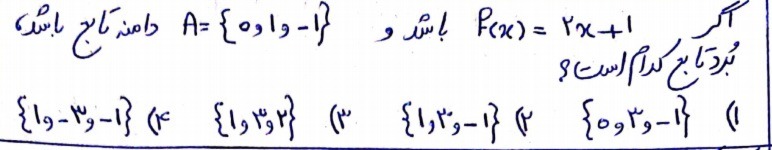 اگر f(x) = ۲x+۱ باشد و A= {۰ و ۱ و -۱} دامنه تابع باشد،
بُرد تابع کدام است؟
۱) {۰ و ۳ و -۱} ۲) {۱ و ۳ و -۱} ۳) {۱ و ۳ و ۲} ۴) {۱ و -۳ و -۱}